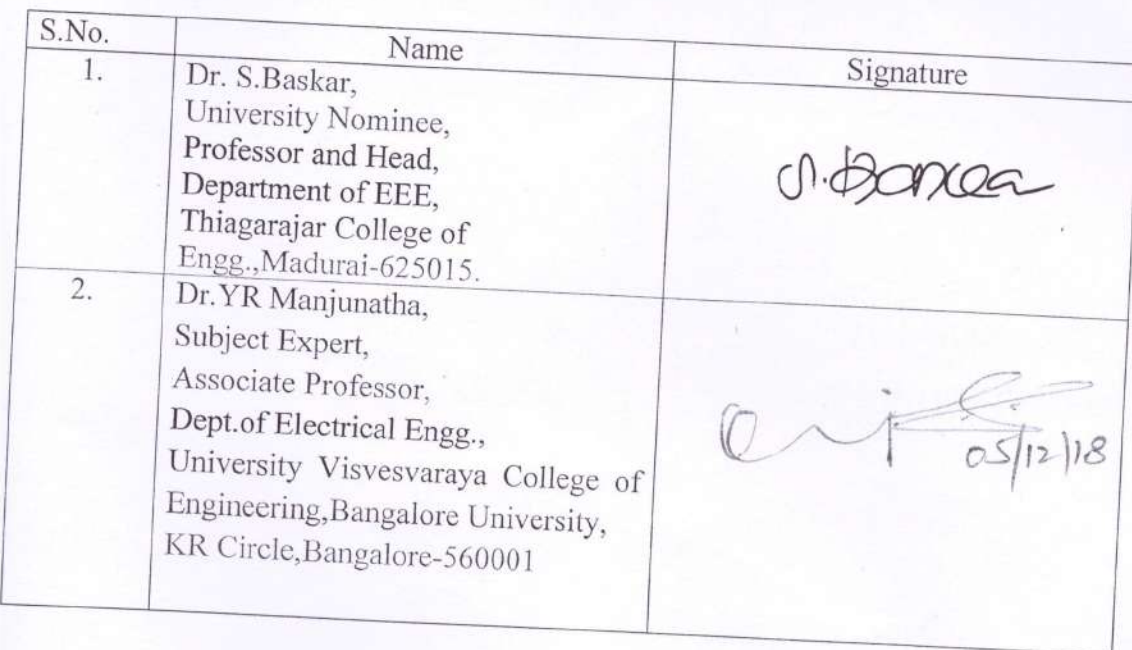 S.No.
Name
Signature
1.
Dr. S.Baskar,
University Nominee,
Professor and Head,
Department of EEE,
Thiagarajar College of
Engg.,Madurai-625015.
2.
Dr.YR Manjunatha,
Subject Expert,
Associate Professor,
Dept.of Electrical Engg.,
University Visvesvaraya College of
Engineering,Bangalore University,
KR Circle,Bangalore-560001
05/12/18